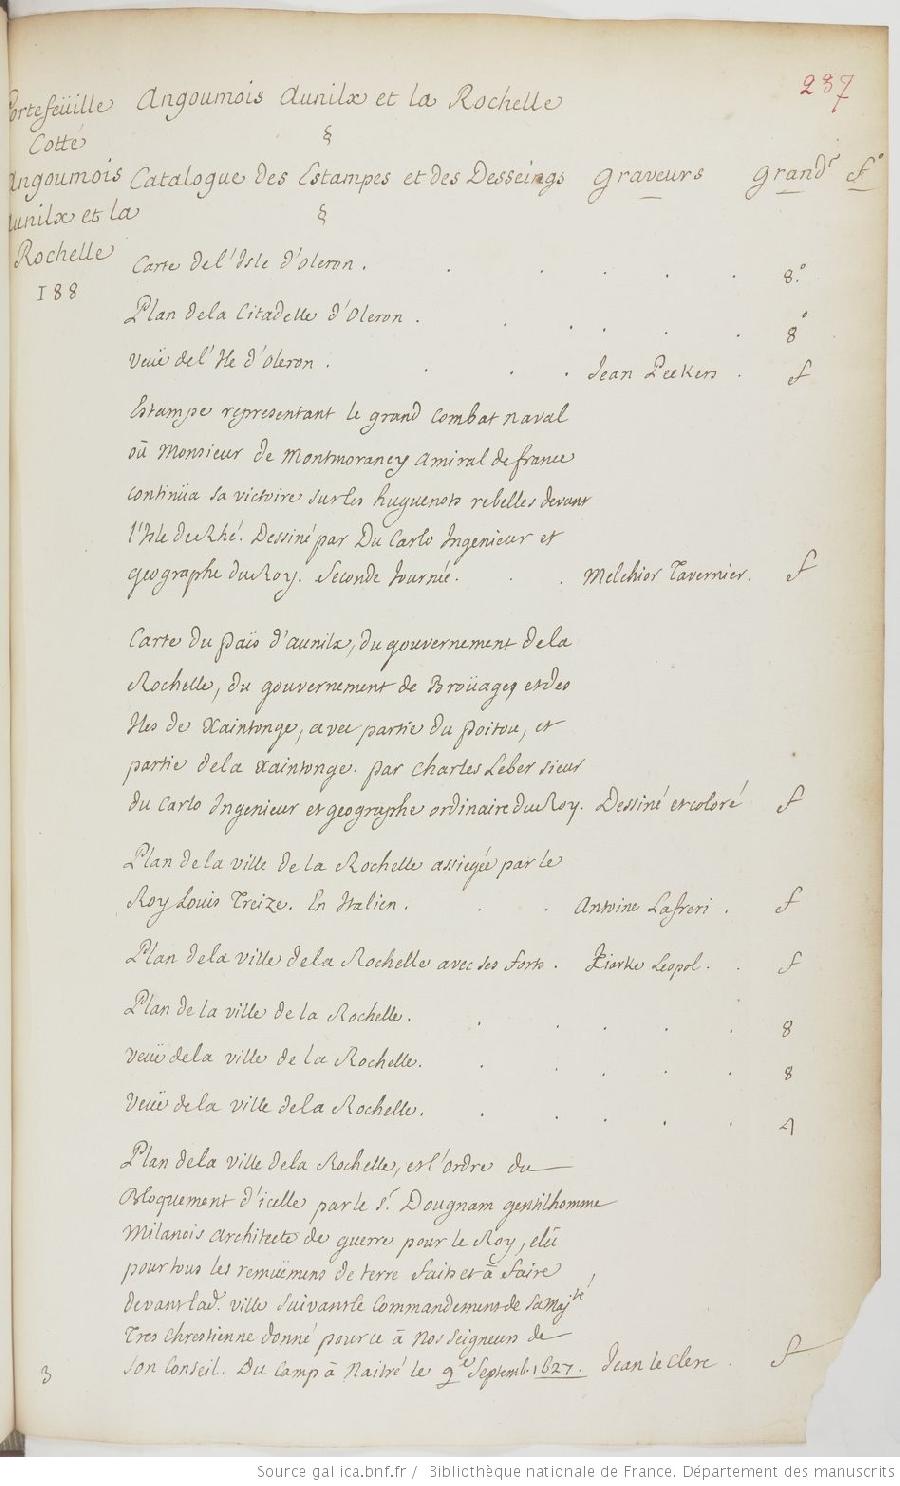 287
Portefeüille
Cotté
Angoumois
Aunilx et la
Rochelle
188
Angoumois Aunilx et la Rochelle
§
Catalogue des Estampes et des Desseings Graveurs Grand.r f.o
§
Carte de l'Isle d'Oleron . 8.o
Plan de la Citadelle d'Oleron . 8o
Veüe de l'Ile d'Oleron . Jean Peeters . f
Estampe representant le grand Combat naval
où Monsieur de Montmorancy Amiral de france
continüa sa victoire sur les huguenots rebelles devant
l'Isle de Rhé. Dessiné par Du Carlo Ingenieur et
geographe du Roy. Seconde Journée. Melchior Tavernier. f
Carte du païs d'aunilx, du gouvernement de la
Rochelle, du gouvernement de Broüages, et des
Iles de Xaintonge, avec partie du poitou, et
partie de la xaintonge. par Charles Leber sieur
du Carlo Ingenieur et geographe ordinaire du Roy. Dessiné et coloré f
Plan de la ville de la Rochelle assiegée par le
Roy Louis Treize. En Italien. Antoine Lafreri . f
Plan de la ville de la Rochelle avec ses forts . Leopol . f
Plan de la ville de la Rochelle. 8
Veüe de la ville de la Rochelle. 8
Veüe de la ville de la Rochelle. 4
Plan de la ville de la Rochelle, et l'ordre du
Bloquement d'icelle par le Sr. Dougnam gentilhomme
Milanois architecte de guerre pour le Roy, eleu
pour tous les remuëmens de terre faits et à faire
devant lad. ville suivant le Commandement de sa Majté
Tres Chrestienne donné pour ce à Nosseigneurs de
Son Conseil. Du Camp à le 9e Septemb. 1627. Jean le Clerc . f
3
Source gallica.bnf.fr / Bibliothèque nationale de France. Département des manuscrits